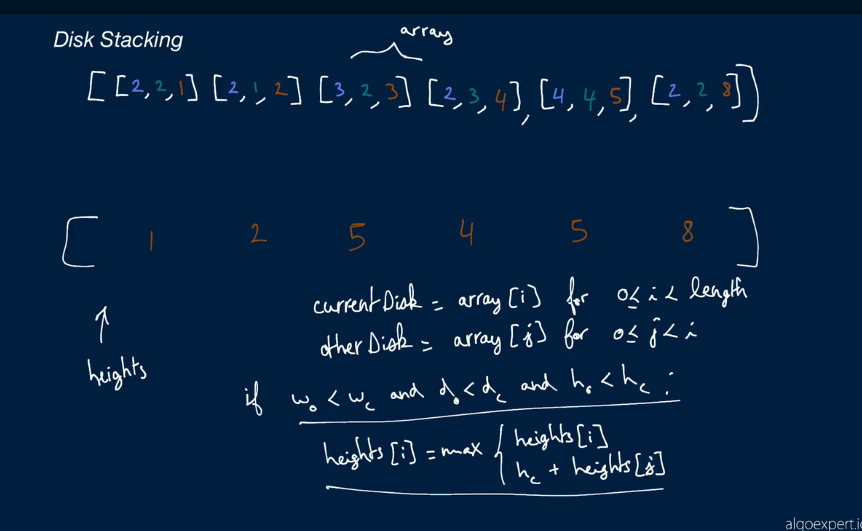 Disk Stacking
array
[ [2, 2, 1] [2, 1, 2] [3, 2, 3] [2, 3, 4], [4, 4, 5], [2, 2, 8] ]
[ 1 2 5 4 5 8 ]
↑
heights
currentDisk = array[i] for 0 ≤ i < length
otherDisk = array[j] for 0 ≤ j < i
if w₀ < w_c and d₀ < d_c and h₀ < h_c :
heights[i] = max { heights[i]
h_c + heights[j]
algoexpert.i